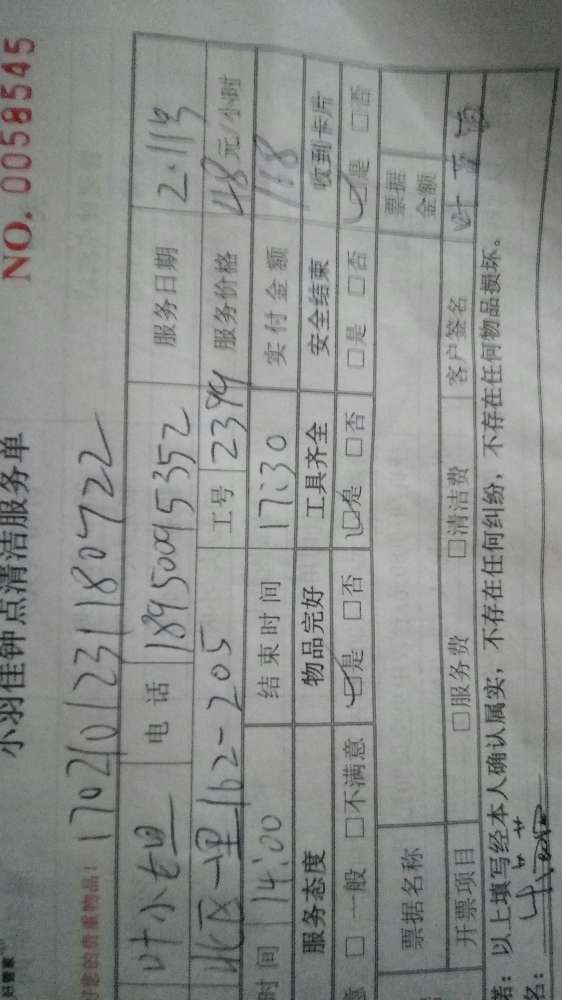 小羽佳钟点清洁服务单
NO. 0058545
的贵重物品！
1702101231180722
叶小姐 电话 18950095352 服务日期 2.119
北区一里162-205 工号 2394 服务价格 48元/小时
时间 14:00 结束时间 17:30 实付金额 168
服务态度 物品完好 工具齐全 安全结束 收到卡片
意 □一般 □不满意 □是 □否 □是 □否 □是 □否 □是 □否
票据名称 票据金额
开票项目 □服务费 □清洁费 客户签名
诺：以上填写经本人确认属实，不存在任何纠纷，不存在任何物品损坏。
名：